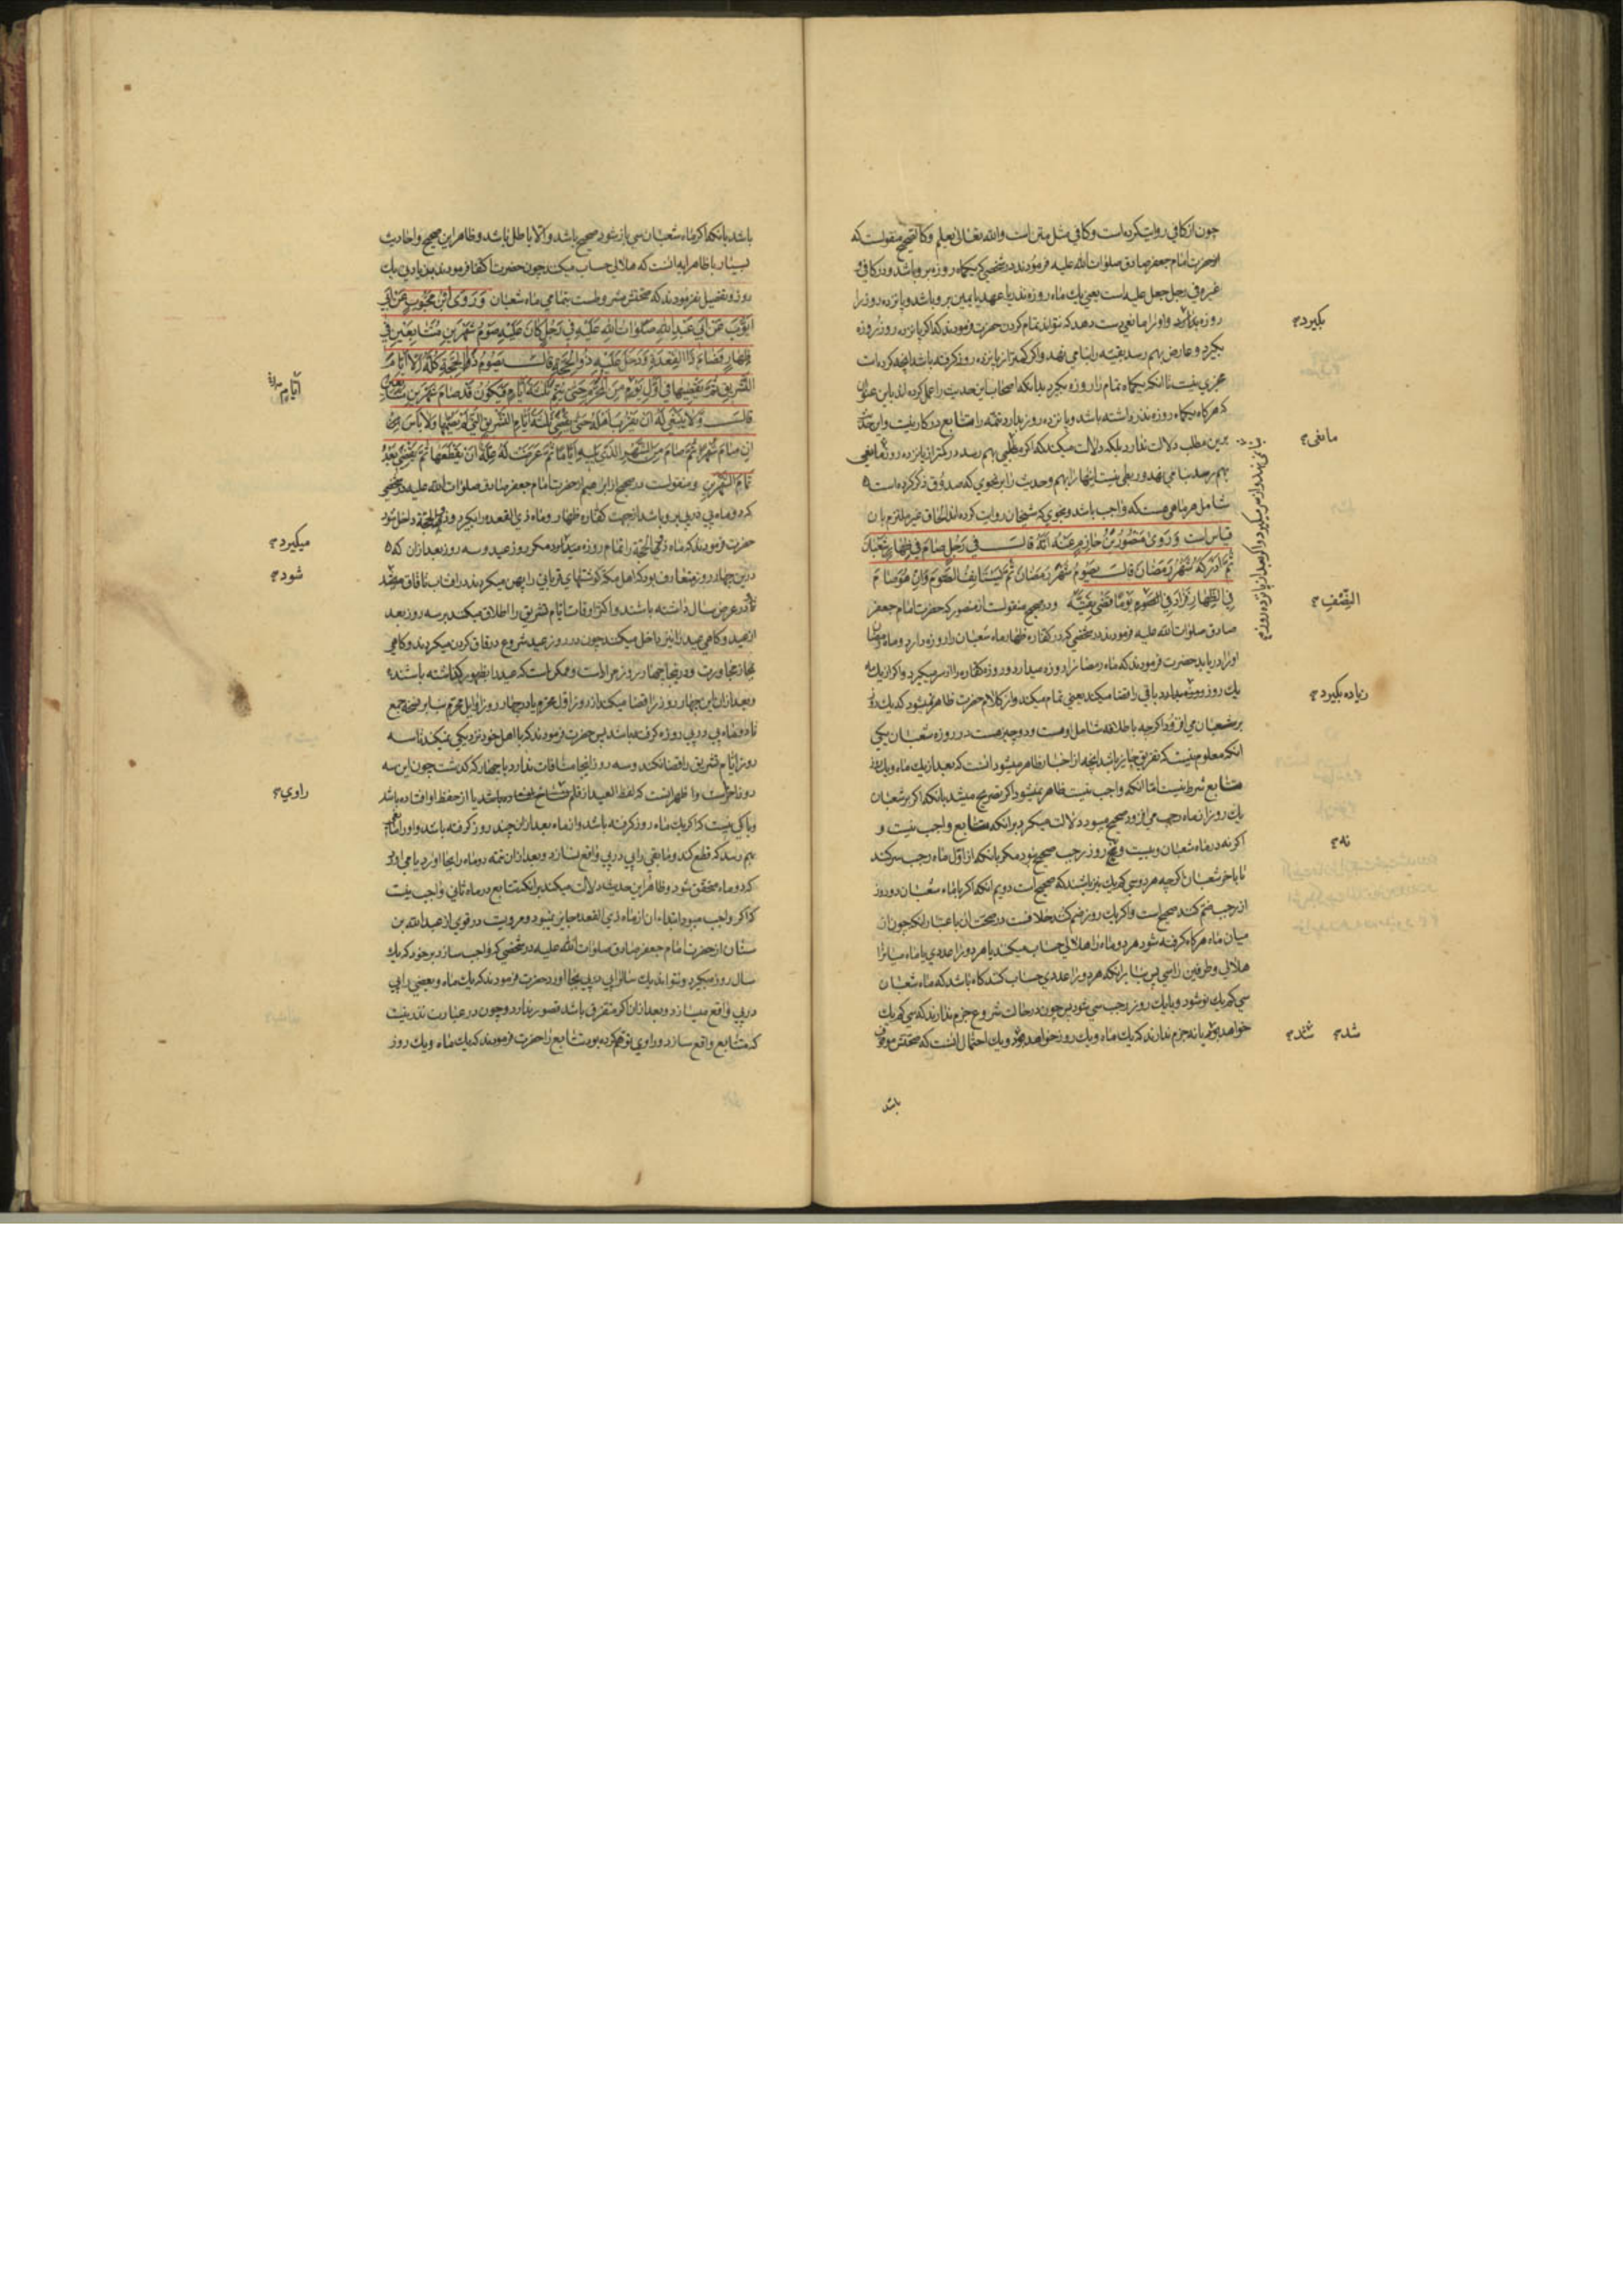 چون از کافی روایت کرده است و کافی مثل متن است والله تعالی یعلم و کالصحیح منقولست که
از حضرت امام جعفر صادق صلوات الله علیه فرمودند در شخصی که یکماه روزه برو باشد و در کافی و
غیره فی رجل جعل علیه است یعنی یك ماه روزه نذر یا عهد یا یمین برو باشد و پانزده روز را
روزه بدارد و او را مانعی دست دهد که نتواند تمام کردن حضرت فرمودند که اگر پانزده روز روزه
بگیرد و عارض بهم رسد بقیه را بنا می نهد و اگر کمتر از پانزده روز گرفته باشد آنچه کرده است
مجزی نیست تا آنکه یکماه تمام را روزه بگیرد بدانکه اصحاب این حدیث را عمل کرده اند باین عنوان
که هرگاه یکماه روزه نذر داشته باشد و پانزده روز بدارد تتمه را متتابع در کار نیست و این حدیث
بر این مطلب دلالت ندارد بلکه دلالت میکند که اگر مطلبی بهم رسد در کمتر از پانزده روز مانعی
بهم رسد بنا می نهد و ربطی نیست اینها را بهم و حدیث را بر نحوی که صدوق ذکر کرده است
شامل هر ماهی هست که واجب باشد و بنحوی که شیخان روایت کرده اند الحاق غیر ملتزم بآن
قیاس است وَ رَوی مَنْصُورُ بْنُ حَازِمٍ عَنْهُ اَنَّهُ قَالَ فی رَجُلٍ صَامَ فِی ظِهَارٍ شَعْبَانَ
ثُمَّ اَدْرَکَهُ شَهْرُ رَمَضَانَ قَالَ یَصُومُ شَهْرَ رَمَضَانَ ثُمَّ یَسْتَانِفُ الصَّوْمَ وَ اِنْ هُوَ صَامَ
فِی الظِّهَارِ فَزَادَ فِی النِّصْفِ یَوْمًا قَضی بَقِیَّتَهُ و در صحیح منقولست از منصور که حضرت امام جعفر
صادق صلوات الله علیه فرمودند در شخصی که در کفاره ظهار ماه شعبان را روزه دارد و ماه رمضان
او را دریابد حضرت فرمودند که ماه رمضان را روزه میدارد و روزه کفاره را از سر میگیرد و اگر از یك ماه
یك روز روزه بدارد باقی را قضا میکند یعنی تمام میکند و از کلام حضرت ظاهر میشود که یك روز
بر شعبان می افزود اگر چه باطلاقه شامل او هست و دو چیز هست در روزه شعبان یکی
آنکه معلوم نیست که تفریق جایز باشد آنچه از اخبار ظاهر میشود آنست که بعد از یك ماه و یك روز
متتابع شرط نیست اما آنکه واجب نیست ظاهر نمیشود اگر تصریح میشد بآنکه اگر بر شعبان
یك روز از ماه رجب می افزود صحیح میبود دلالت میکرد بر آنکه متتابع واجب نیست و
اگر نه در ماه شعبان و بیست و نه روز رجب صحیح نبود مگر بآنکه از اول ماه رجب سر کند
تا بآخر شعبان اگرچه هر دو سی کم یك نیز باشند که صحیح است دویم آنکه اگر با ماه شعبان دو روز
از رجب ضم کند صحیح است و اگر یك روز ضم کند خلافست در صحت آن باعتبار آنکه چون از
میان ماه هر گاه گرفته شود هر دو ماه را هلالی حساب میکند یا هر دو را عددی یا ماه میانرا
هلالی و طرفین را سی پس بنا بر آنکه هر دو را عددی حساب کند گاه باشد که ماه شعبان
سی کم یك نو شود و بایك روز رجب سی شود پس چون در حالت شروع جزم ندارند که سی کم یك
خواهد بود یا نه جزم ندارند که یك ماه و یك روز خواهد بود و یك احتمال آنست که صحتش موقوف
باشد
بگیرد
مانعی
النِّصْفِ
زیاده بگیرد
نه
شد شد
باشد بآنکه اگر ماه شعبان سی باز شود صحیح باشد و الا باطل باشد و ظاهر این صحیح و احادیث
بسیار با ظاهر آیه آنست که هلالی حساب میکند چون حضرت اکتفا فرمودند بزیادتی یك
روز و تفصیل نفرمودند که صحتش مشروطست بتمامی ماه شعبان وَ رَوَی ابْنُ مَحْبُوبٍ عَنْ اَبِی
اَیُّوبَ عَنْ اَبِی عَبْدِ اللهِ صَلَوَاتُ اللهِ عَلَیْهِ فِی رَجُلٍ کَانَ عَلَیْهِ صَوْمُ شَهْرَیْنِ مُتَتَابِعَیْنِ فِی
ظِهَارٍ فَصَامَ ذَا الْقَعْدَةِ وَ دَخَلَ عَلَیْهِ ذُو الْحِجَّةِ قَالَ یَصُومُ ذَا الْحِجَّةِ کُلَّهُ اِلَّا اَیَّامَ
التَّشْرِیقِ ثُمَّ یَقْضِیهَا فِی اَوَّلِ یَوْمٍ مِنَ الْمُحَرَّمِ حَتَّی یُتِمَّ ثَلٰثَةَ اَیَّامٍ فَیَکُونُ قَدْ صَامَ شَهْرَیْنِ مُتَتَابِعَیْنِ
قَالَ وَ لَا یَنْبَغِی لَهُ اَنْ یَقْرُبَ اَهْلَهُ حَتَّی یَقْضِیَ ثَلٰثَةَ اَیَّامِ التَّشْرِیقِ الَّتِی لَمْ یَصُمْهَا وَ لَا بَاْسَ
اِنْ صَامَ شَهْرًا ثُمَّ صَامَ مِنَ الشَّهْرِ الَّذِی یَلِیهِ اَیَّامًا ثُمَّ عَرَضَتْ لَهُ عِلَّةٌ اَنْ یَقْطَعَهَا ثُمَّ یَقْضِیَ بَعْدَ
تَمَامِ الشَّهْرَیْنِ و منقولست در صحیح از ابراهیم از حضرت امام جعفر صادق صلوات الله علیه در شخصی
که دو ماه پی در پی برو باشد از جهت کفاره ظهار و ماه ذی القعده را بگیرد و ذی الحجة داخل شود
حضرت فرمودند که ماه ذی الحجة را تمام روزه میدارد مگر روز عید و سه روز بعد از آن که
درین چهار روز متعارف بود که اهل مکه گوشتهای قربانی را پهن میکردند در آفتاب تا قاق
تا در عرض سال داشته باشند و اکثر اوقات ایام تشریق را اطلاق میکنند بر سه روز بعد
از عید و گاهی عید را نیز داخل میکنند چون در روز عید شروع در قاق کردن میکردند و گاهی
مجاز مجاورت و در اینجا چهار روز مراد است و ممکن است که عید را بظهور گذاشته باشند
و بعد از آن این چهار روز را قضا میکند از روز اول محرم یا در چهار روز اوایل محرم بنا بر نسخه جمع
تا دو ماه پی در پی روزه گرفته باشد پس حضرت فرمودند که با اهل خود نزدیکی نمیکند تا سه
روز ایام تشریق را قضا نکند و سه روز اینجا منافات ندارد با چهار که گذشت چون این سه
روز آخر است و اظهر اینست که لفظ العید از قلم نساخ افتاده باشد یا از حفظ او افتاده باشد
و باکی نیست که اگر یك ماه روزه گرفته باشد و از ماه بعد ازین چند روز گرفته باشد و او را مانعی
بهم رسد که قطع کند و مابقی را پی در پی واقع نسازد و بعد از آن تتمه دو ماه را بجا آورد
که دو ماه محقق شود و ظاهر این حدیث دلالت میکند بر آنکه تتابع در ماه ثانی واجب نیست
که اگر واجب میبود ابتداء آن از ماه ذی القعده جایز نمیبود و مرویست در قوی از عبدالله بن
سنان از حضرت امام جعفر صادق صلوات الله علیه در شخصی که واجب سازد بر خود که یك
سال روزه بگیرد و نتواند یك سال را پی در پی بجا آورد حضرت فرمودند که یك ماه و بعضی را پی
در پی واقع میسازد و بعد از آن اگر متفرق باشد قصور ندارد و چون در عبارت نذر نیست
که متتابع واقع سازد و راوی توهم کرده بود تتابع را حضرت فرمودند که یك ماه و یك روز
اَیَّامٍ
میگیرد
شود
راوی